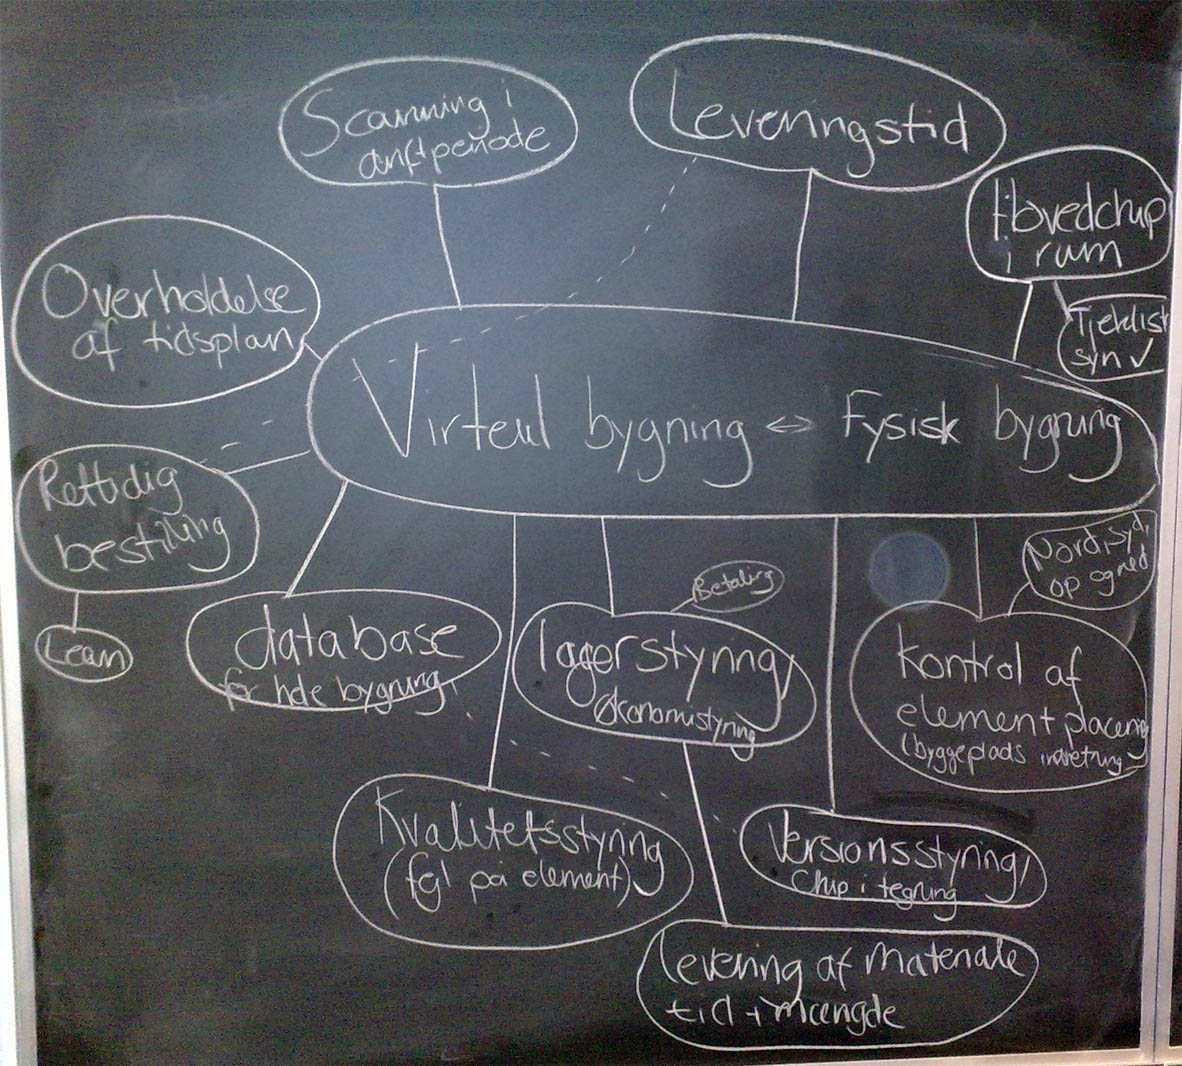 Scanning i
driftperiode
Leveringstid
Hovedchip
i rum
Tjekliste
syn ✓
Overholdelse
af tidsplan
Virteul bygning ↔ Fysisk bygning
Rettidig
bestilling
Lean
database
for hele bygning
Betaling
lagerstyring/
økonomistyring
Nord, syd,
op og ned
Kontrol af
elementplacering
(byggeplads indretning
Kvalitetsstyring
(fejl på element)
Versionsstyring/
Chip i tegning
Levering af materiale
tid + mængde